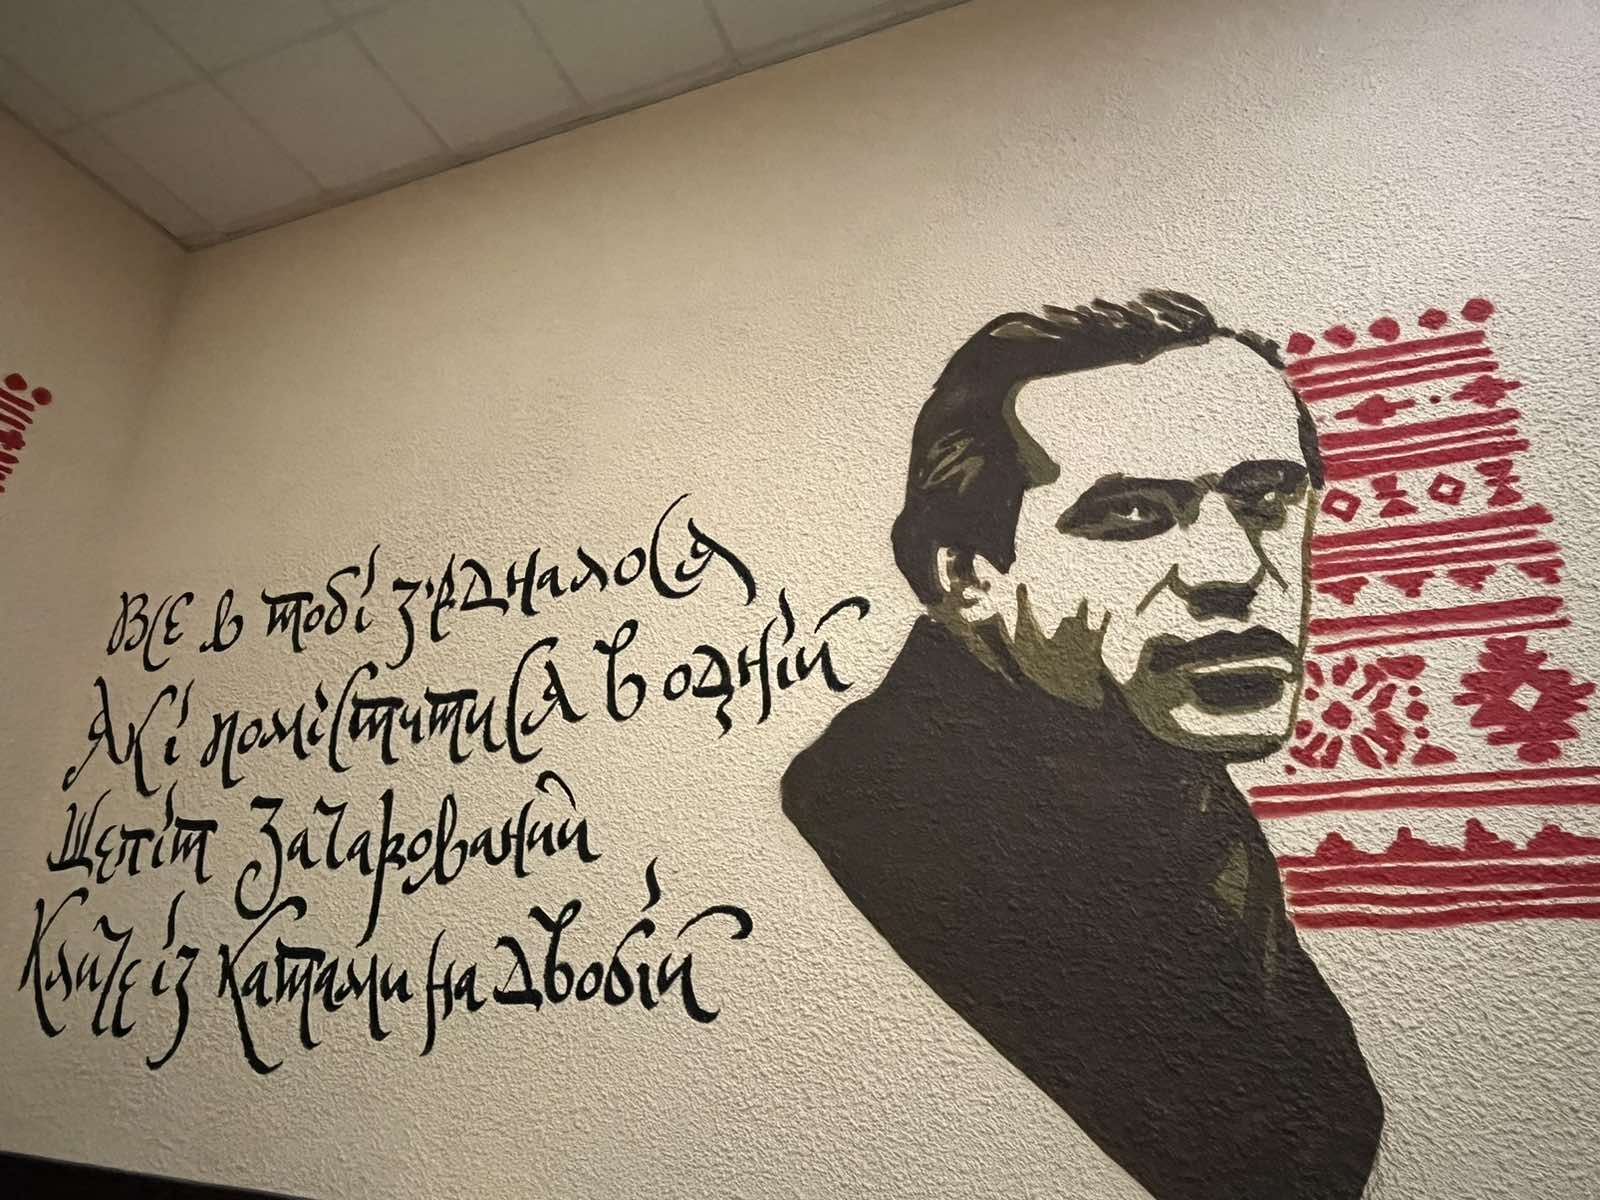 Все в тобі з'єдналося
Які помістити ся в одній
Шепіт зачарований
Кличе із катами на двобій